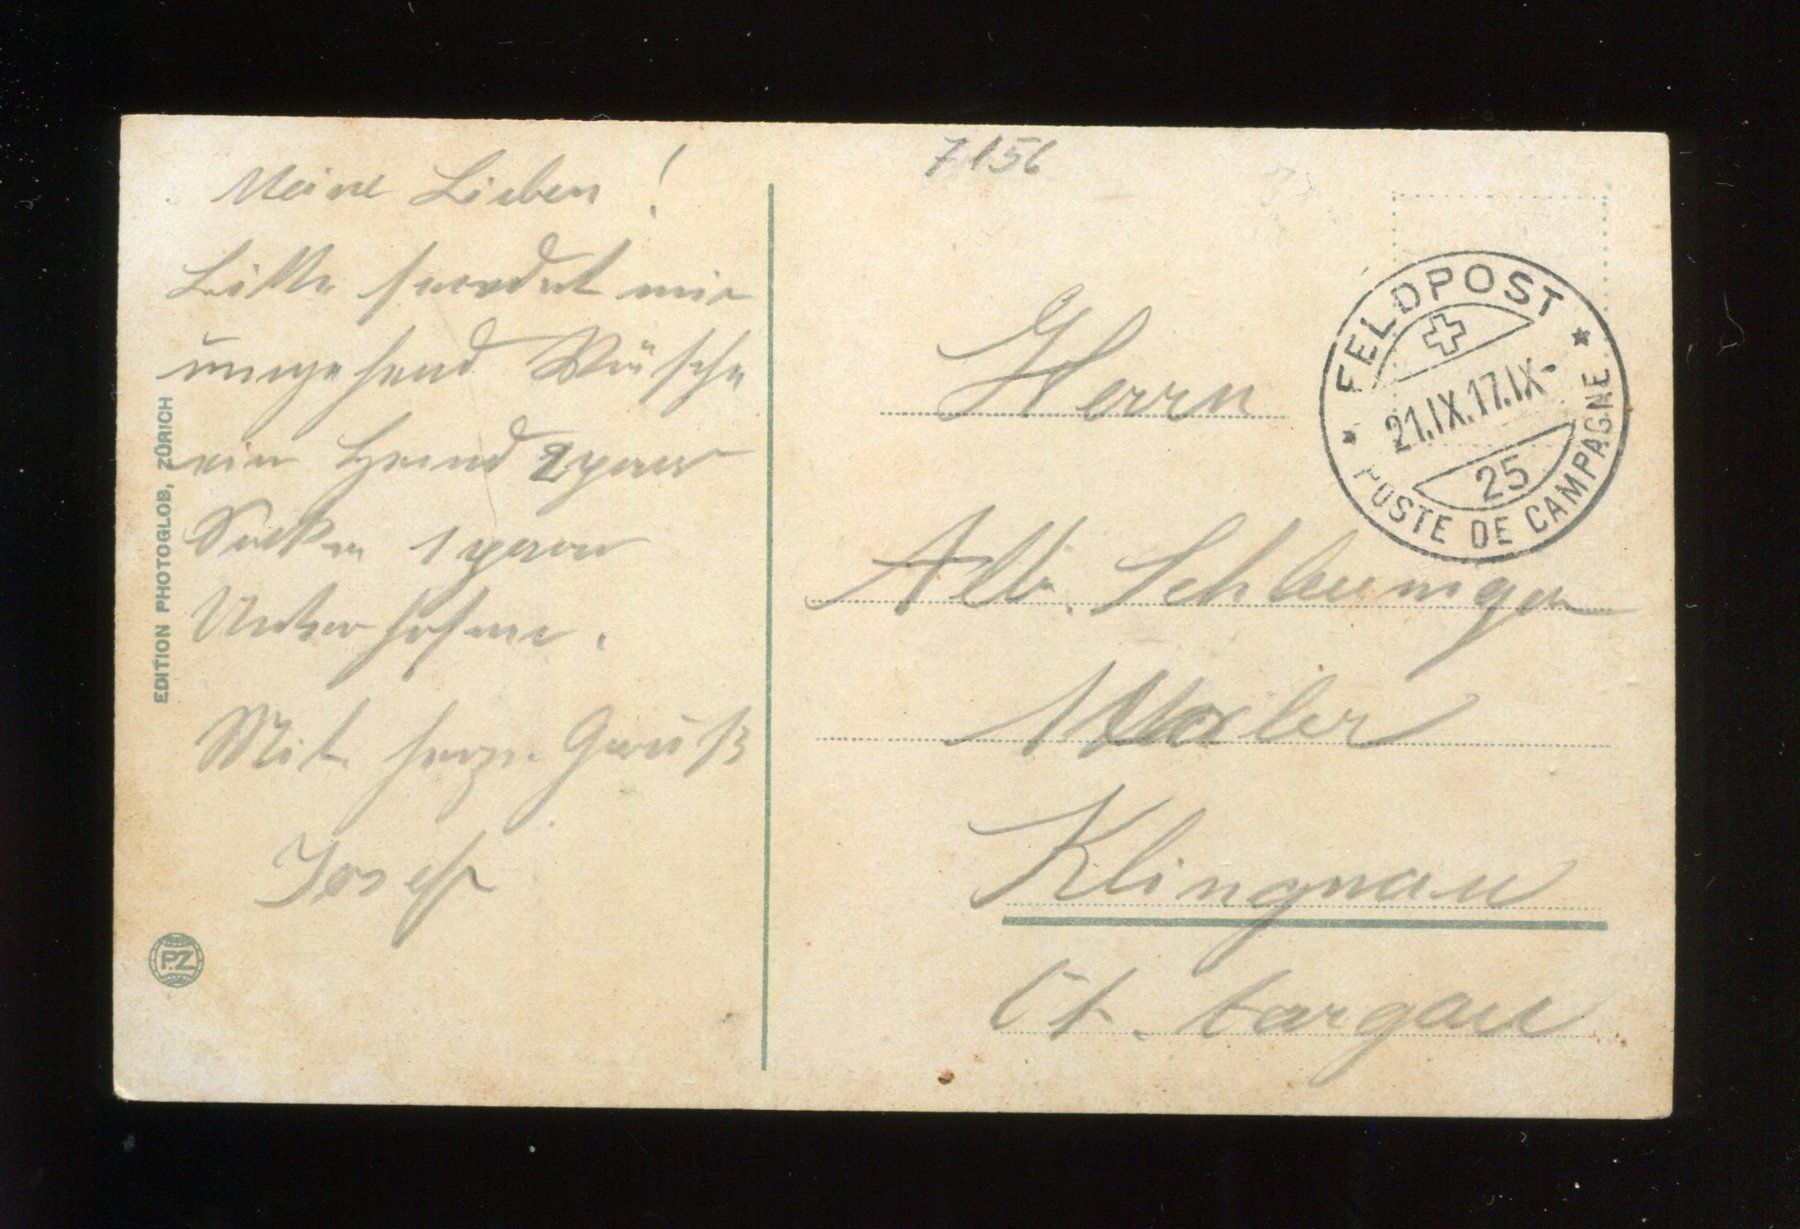 Meine Lieben!
Bitte sendet mir
umgehend Wäsche
ein Hemd 2 paar
Socken 1 paar
Unterhosen.
Mit herzl. Gruß
Josef
EDITION PHOTOGLOB, ZÜRICH
PZ
7156
FELDPOST
21.IX.17.IX-
25
POSTE DE CAMPAGNE
Herrn
Alb. Schleuniger
Maler
Klingnau
Ct. Aargau